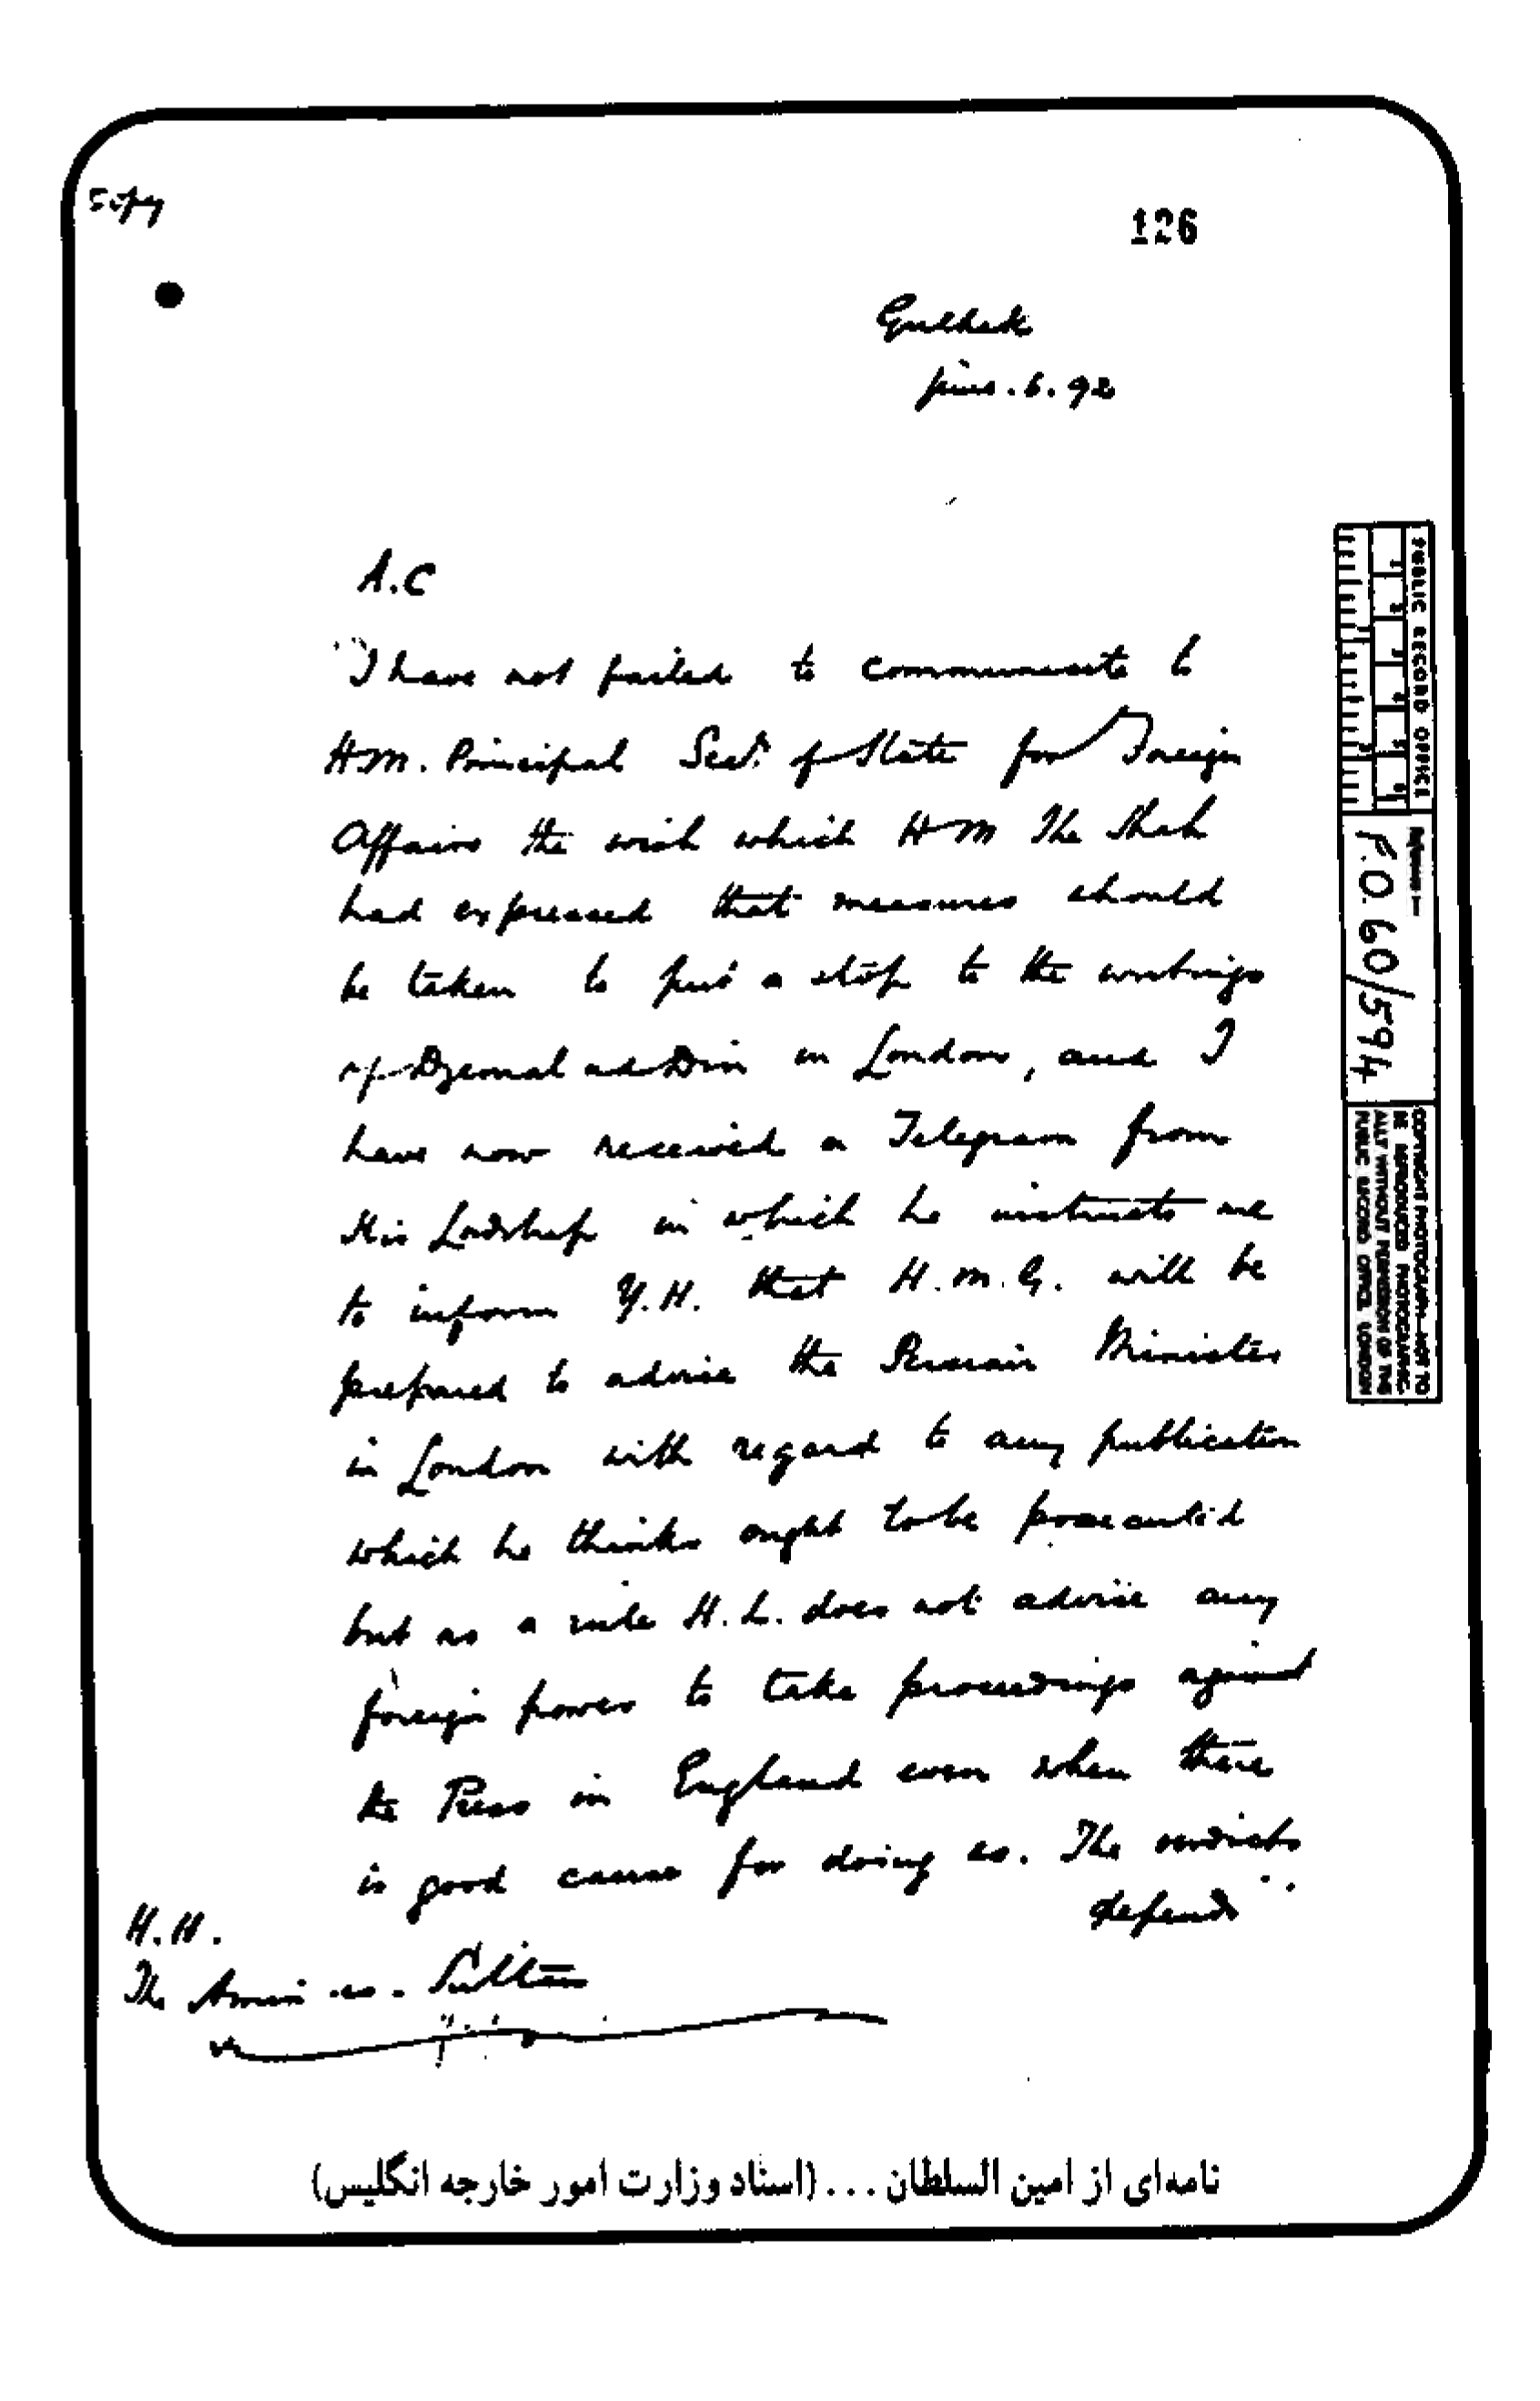 Copy
126
Gulhek
June. 6. 92
A.C
"I have not failed to communicate to
H M. Principal Secy. of State for Foreign
Affairs the wish which H M The Shah
had expressed that measures should
be taken to put a stop to the writings
of Djemal ad Din in London, and I
have now received a Telegram from
His Lordship in which he instructs me
to inform Y.H. that H.M.G. will be
prepared to advise the Persian Minister
in London with regard to any publication
which he thinks ought to be prosecuted
but as a rule H.L. does not advise any
foreign power to take proceedings against
the Press in England even when there
is good cause for doing so. The verdicts
depend
H.H.
The Amin-es-Sultan
PUBLIC RECORD OFFICE
Reference :-
F.O. 60/594
COPYRIGHT PHOTOGRAPH - NOT TO
BE REPRODUCED PHOTOGRAPHIC-
ALLY WITHOUT PERMISSION OF THE
PUBLIC RECORD OFFICE, LONDON
نامه‌ای از امین السلطان . . . (اسناد وزارت امور خارجه انگلیس)